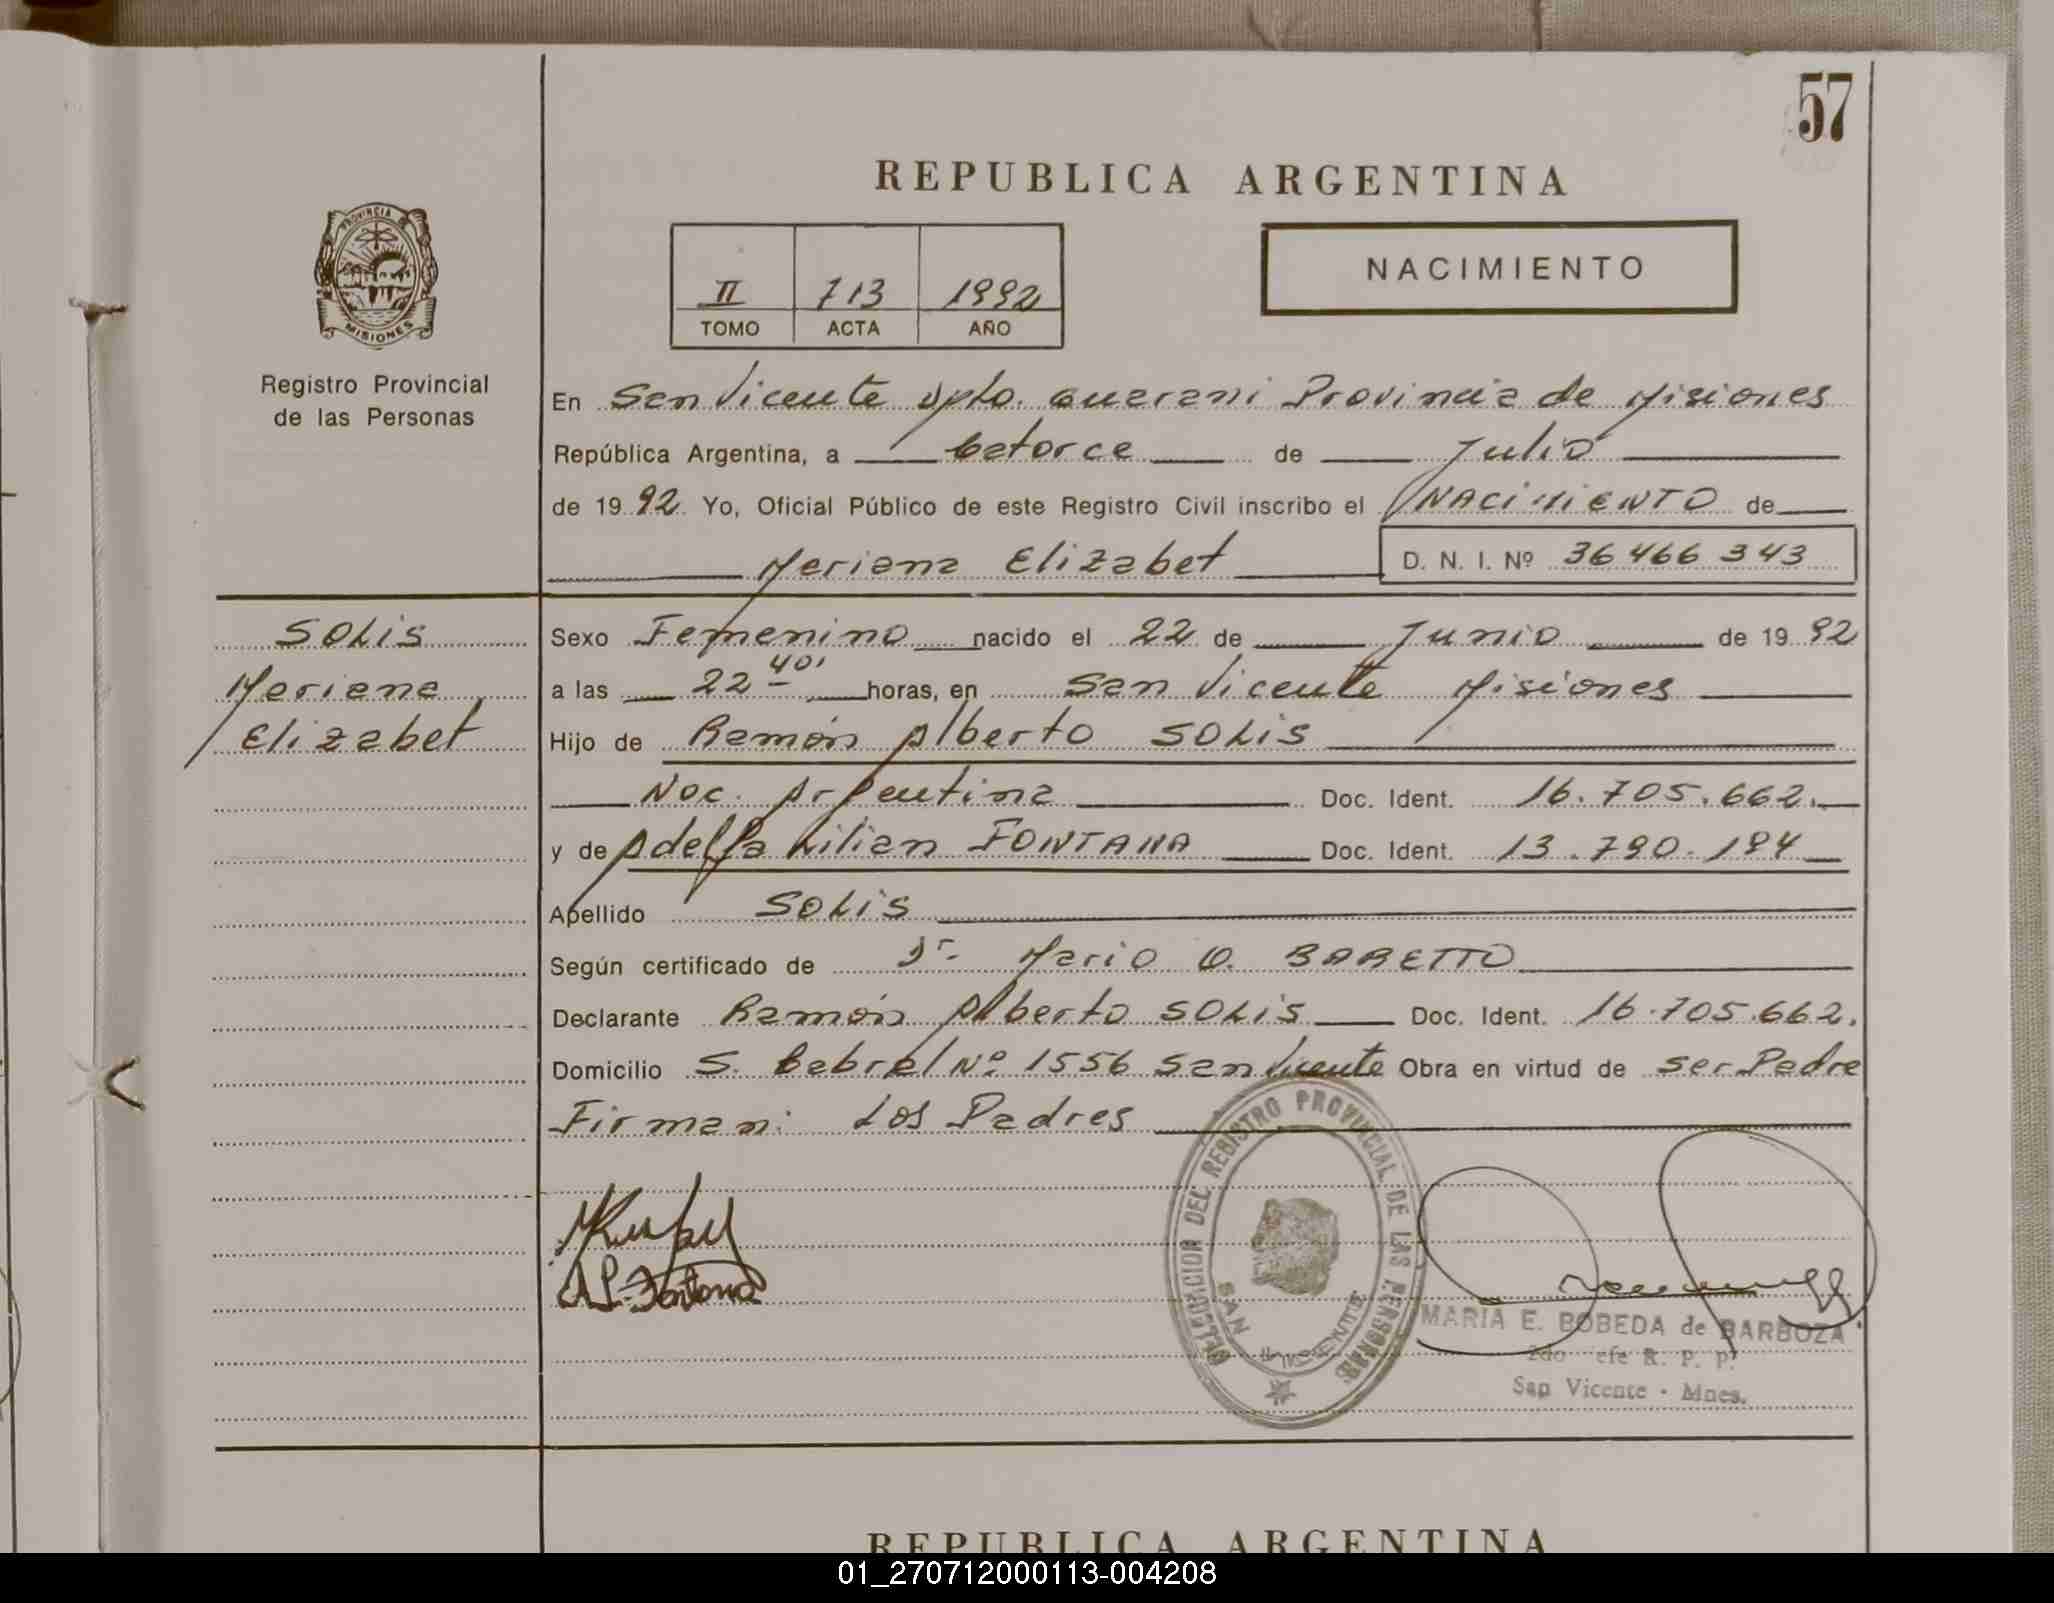 57
REPUBLICA ARGENTINA
PROVINCIA DE
MISIONES
Registro Provincial
de las Personas
II 713 1992
TOMO ACTA AÑO
NACIMIENTO
En San Vicente Dpto. Guarani Provincia de Misiones
República Argentina, a catorce de Julio
de 1992 Yo, Oficial Público de este Registro Civil inscribo el NACIMIENTO de
Mariana Elizabet D. N. I. Nº 36466343
SOLIS
Mariana
Elizabet
Sexo Femenino nacido el 22 de Junio de 1992
a las 22 40' horas, en San Vicente Misiones
Hijo de Ramón Alberto SOLIS
Nac. Argentina Doc. Ident. 16.705.662.
y de Adelfa Lilian FONTANA Doc. Ident. 13.790.194
Apellido SOLIS
Según certificado de Dr. Mario O. BARETTO
Declarante Ramón Alberto SOLIS Doc. Ident. 16.705.662.
Domicilio S. Cabral Nº 1556 San Vicente Obra en virtud de ser Padre
Firman: Los Padres
A L. Fontana
DELEGACION DEL REGISTRO PROVINCIAL DE LAS PERSONAS
SAN VICENTE
MARIA E. BOBEDA de BARBOZA
2do efe R. P. P.
San Vicente - Mnes.
REPUBLICA ARGENTINA
01_270712000113-004208